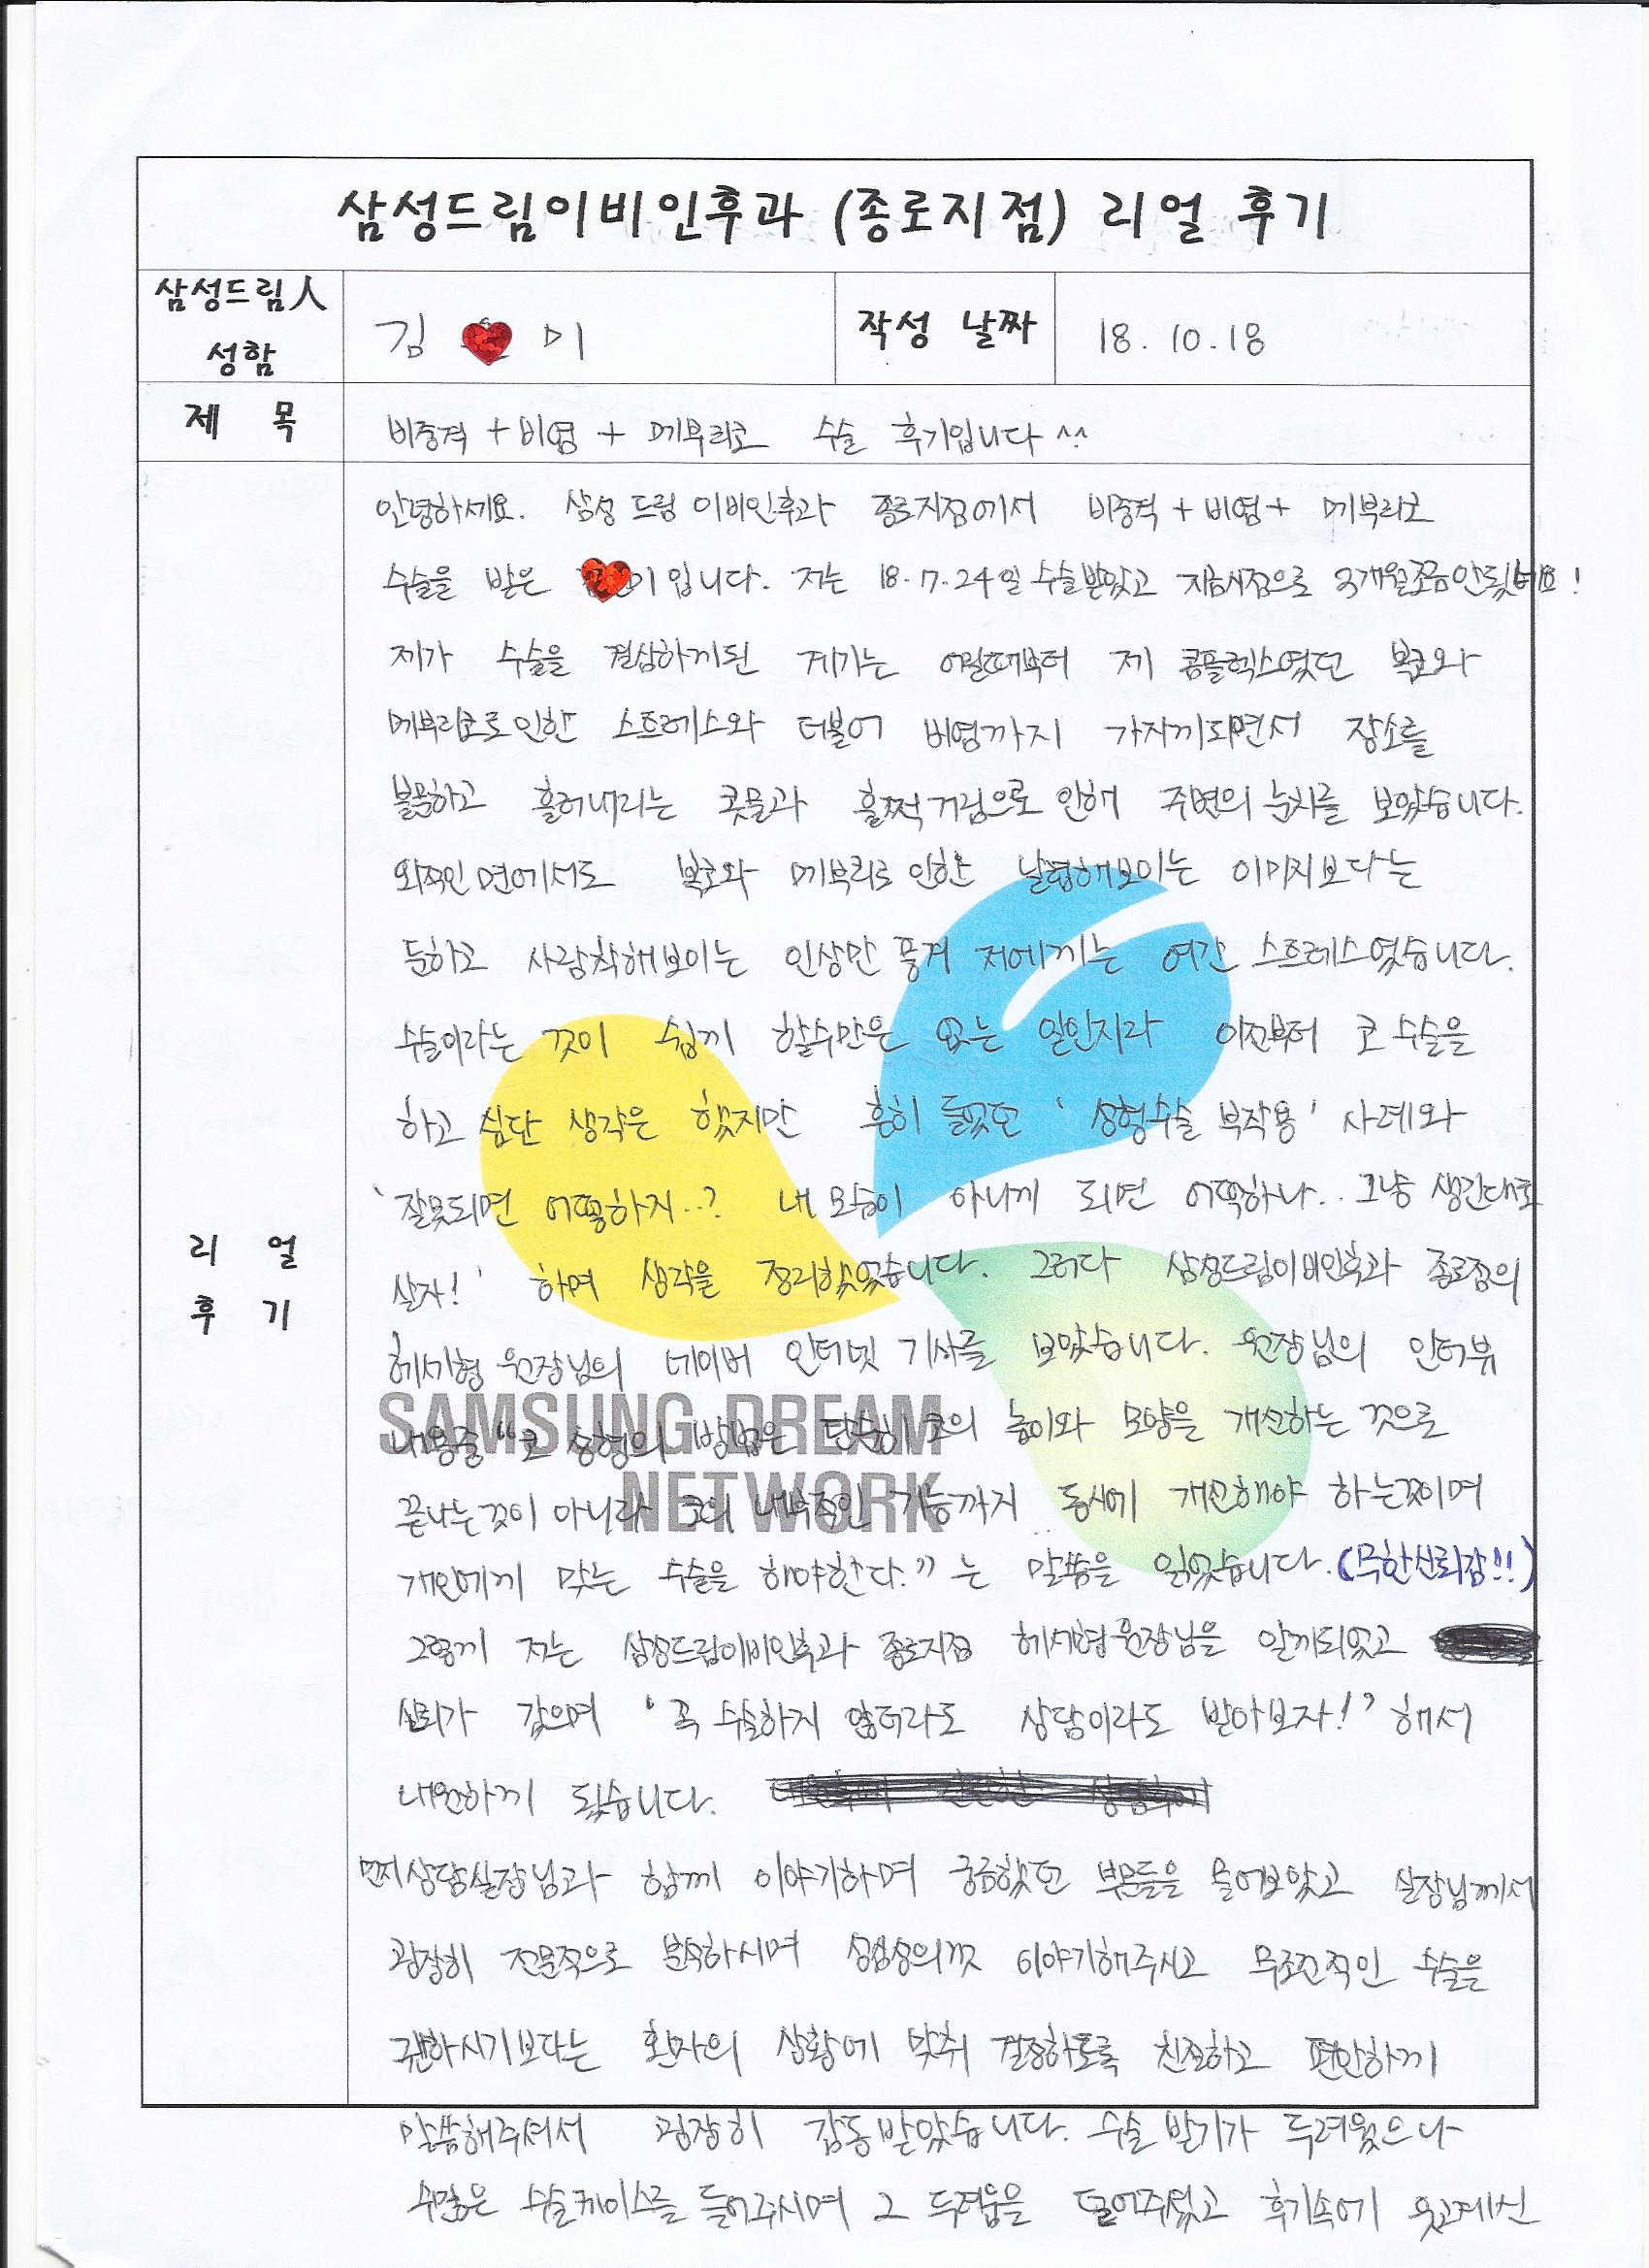 삼성드림이비인후과 (종로지점) 리얼 후기
삼성드림人 성함
김 미
작성 날짜
18. 10. 18
제 목
비중격 + 비염 + 메부리코 수술 후기입니다 ^^
리 얼 후 기
안녕하세요. 삼성드림 이비인후과 종로지점에서 비중격 + 비염 + 메부리코
수술을 받은 미입니다. 저는 18.7.24일 수술받았고 지금시점으로 3개월조금안됫네요!
제가 수술을 결심하게된 계기는 어릴때부터 제 콤플렉스였던 복코와
메부리코로인한 스트레스와 더불어 비염까지 가지게되면서 장소를
불문하고 흘러내리는 콧물과 훌쩍거림으로 인해 주변의 눈치를 보았습니다.
외적인 면에서도 복코와 메부리로 인한 날렵해보이는 이미지보다는
둔하고 사람착해보이는 인상만 풍겨 저에게는 여간 스트레스였습니다.
수술이라는 것이 쉽게 할수만은 없는 일인지라 이전부터 코 수술을
하고 싶단 생각은 했지만 흔히 들었던 '성형수술 부작용' 사례와
'잘못되면 어떻하지..? 내 모습이 아니게 되면 어떡하나.. 그냥 생긴대로
살자!' 하며 생각을 정리했었습니다. 그러다 삼성드림이비인후과 종로점의
원장님의 네이버 인터넷 기사를 보았습니다. 원장님의 인터뷰
내용중 "코 성형의 방법은 단순히 코의 높이와 모양을 개선하는 것으로
끝나는것이 아니라 코의 내부적인 기능까지 동시에 개선해야 하는것이며
개인에게 맞는 수술을 해야한다." 는 말씀을 읽었습니다. (무한신뢰감!!)
그렇게 저는 삼성드림이비인후과 종로지점 원장님을 알게되었고
신뢰가 갔으며 '꼭 수술하지 않더라도 상담이라도 받아보자!' 해서
내원하게 됬습니다.
먼저 상담실장님과 함께 이야기하며 궁금했던 부분들을 물어보았고 실장님께서
굉장히 전문적으로 분석하시며 성심성의껏 이야기해주시고 무조건적인 수술을
권하시기보다는 환자의 상황에 맞춰 결정하도록 친절하고 편안하게
말씀해주셔서 굉장히 감동받았습니다. 수술 받기가 두려웠으나
수많은 수술케이스를 들어주시며 그 두려움을 덜어주셨고 후기속에 웃고계신
SAMSUNG DREAM
NETWORK